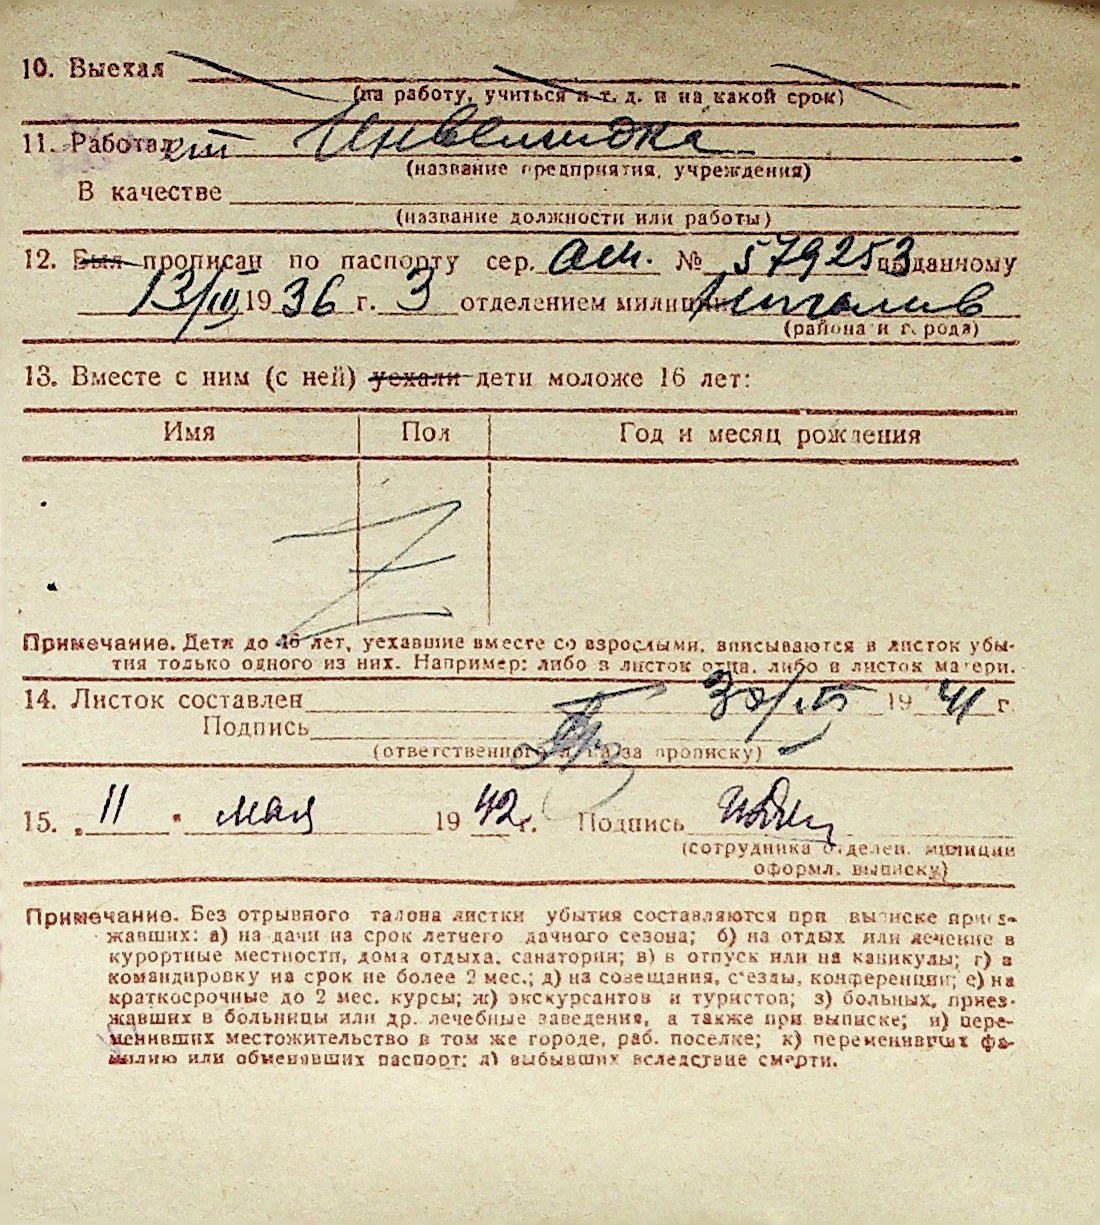 10. Выехал
(на работу, учиться и т. д. и на какой срок)
11. Работает Инвалидка
(название предприятия, учреждения)
В качестве
(название должности или работы)
12. Был прописан по паспорту сер. № 579253 выданному
13/III 1936 г. 3 отделением милиции
(района и города)
13. Вместе с ним (с ней) уехали дети моложе 16 лет:
Имя Пол Год и месяц рождения
Примечание. Дети до 16 лет, уехавшие вместе со взрослыми, вписываются в листок убы-
тия только одного из них. Например: либо в листок отца, либо в листок матери.
14. Листок составлен 1941 г.
Подпись
(ответственного лица за прописку)
15. „11" мая 1942 г. Подпись
(сотрудника отделен. милиции
оформл. выписку)
Примечание. Без отрывного талона листки убытия составляются при выписке приез-
жавших: а) на дачи на срок летнего дачного сезона; б) на отдых или лечение в
курортные местности, дома отдыха, санатории; в) в отпуск или на каникулы; г) в
командировку на срок не более 2 мес.; д) на совещания, съезды, конференции; е) на
краткосрочные до 2 мес. курсы; ж) экскурсантов и туристов; з) больных, приез-
жавших в больницы или др. лечебные заведения, а также при выписке; и) пере-
менивших местожительство в том же городе, раб. поселке; к) переменивших фа-
милию или обменявших паспорт; л) выбывших вследствие смерти.